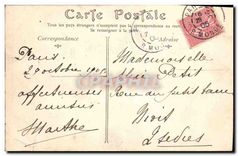 Carte Postale
Tous les pays étrangers n'acceptent pas la correspondance au recto
Se renseigner à la poste
Correspondance
Adresse
Paris
2 octobre 1905
affectueuses
amitiés
Marthe
Mademoiselle
Petit
Rue du petit banc
Niort
2 Sèvres